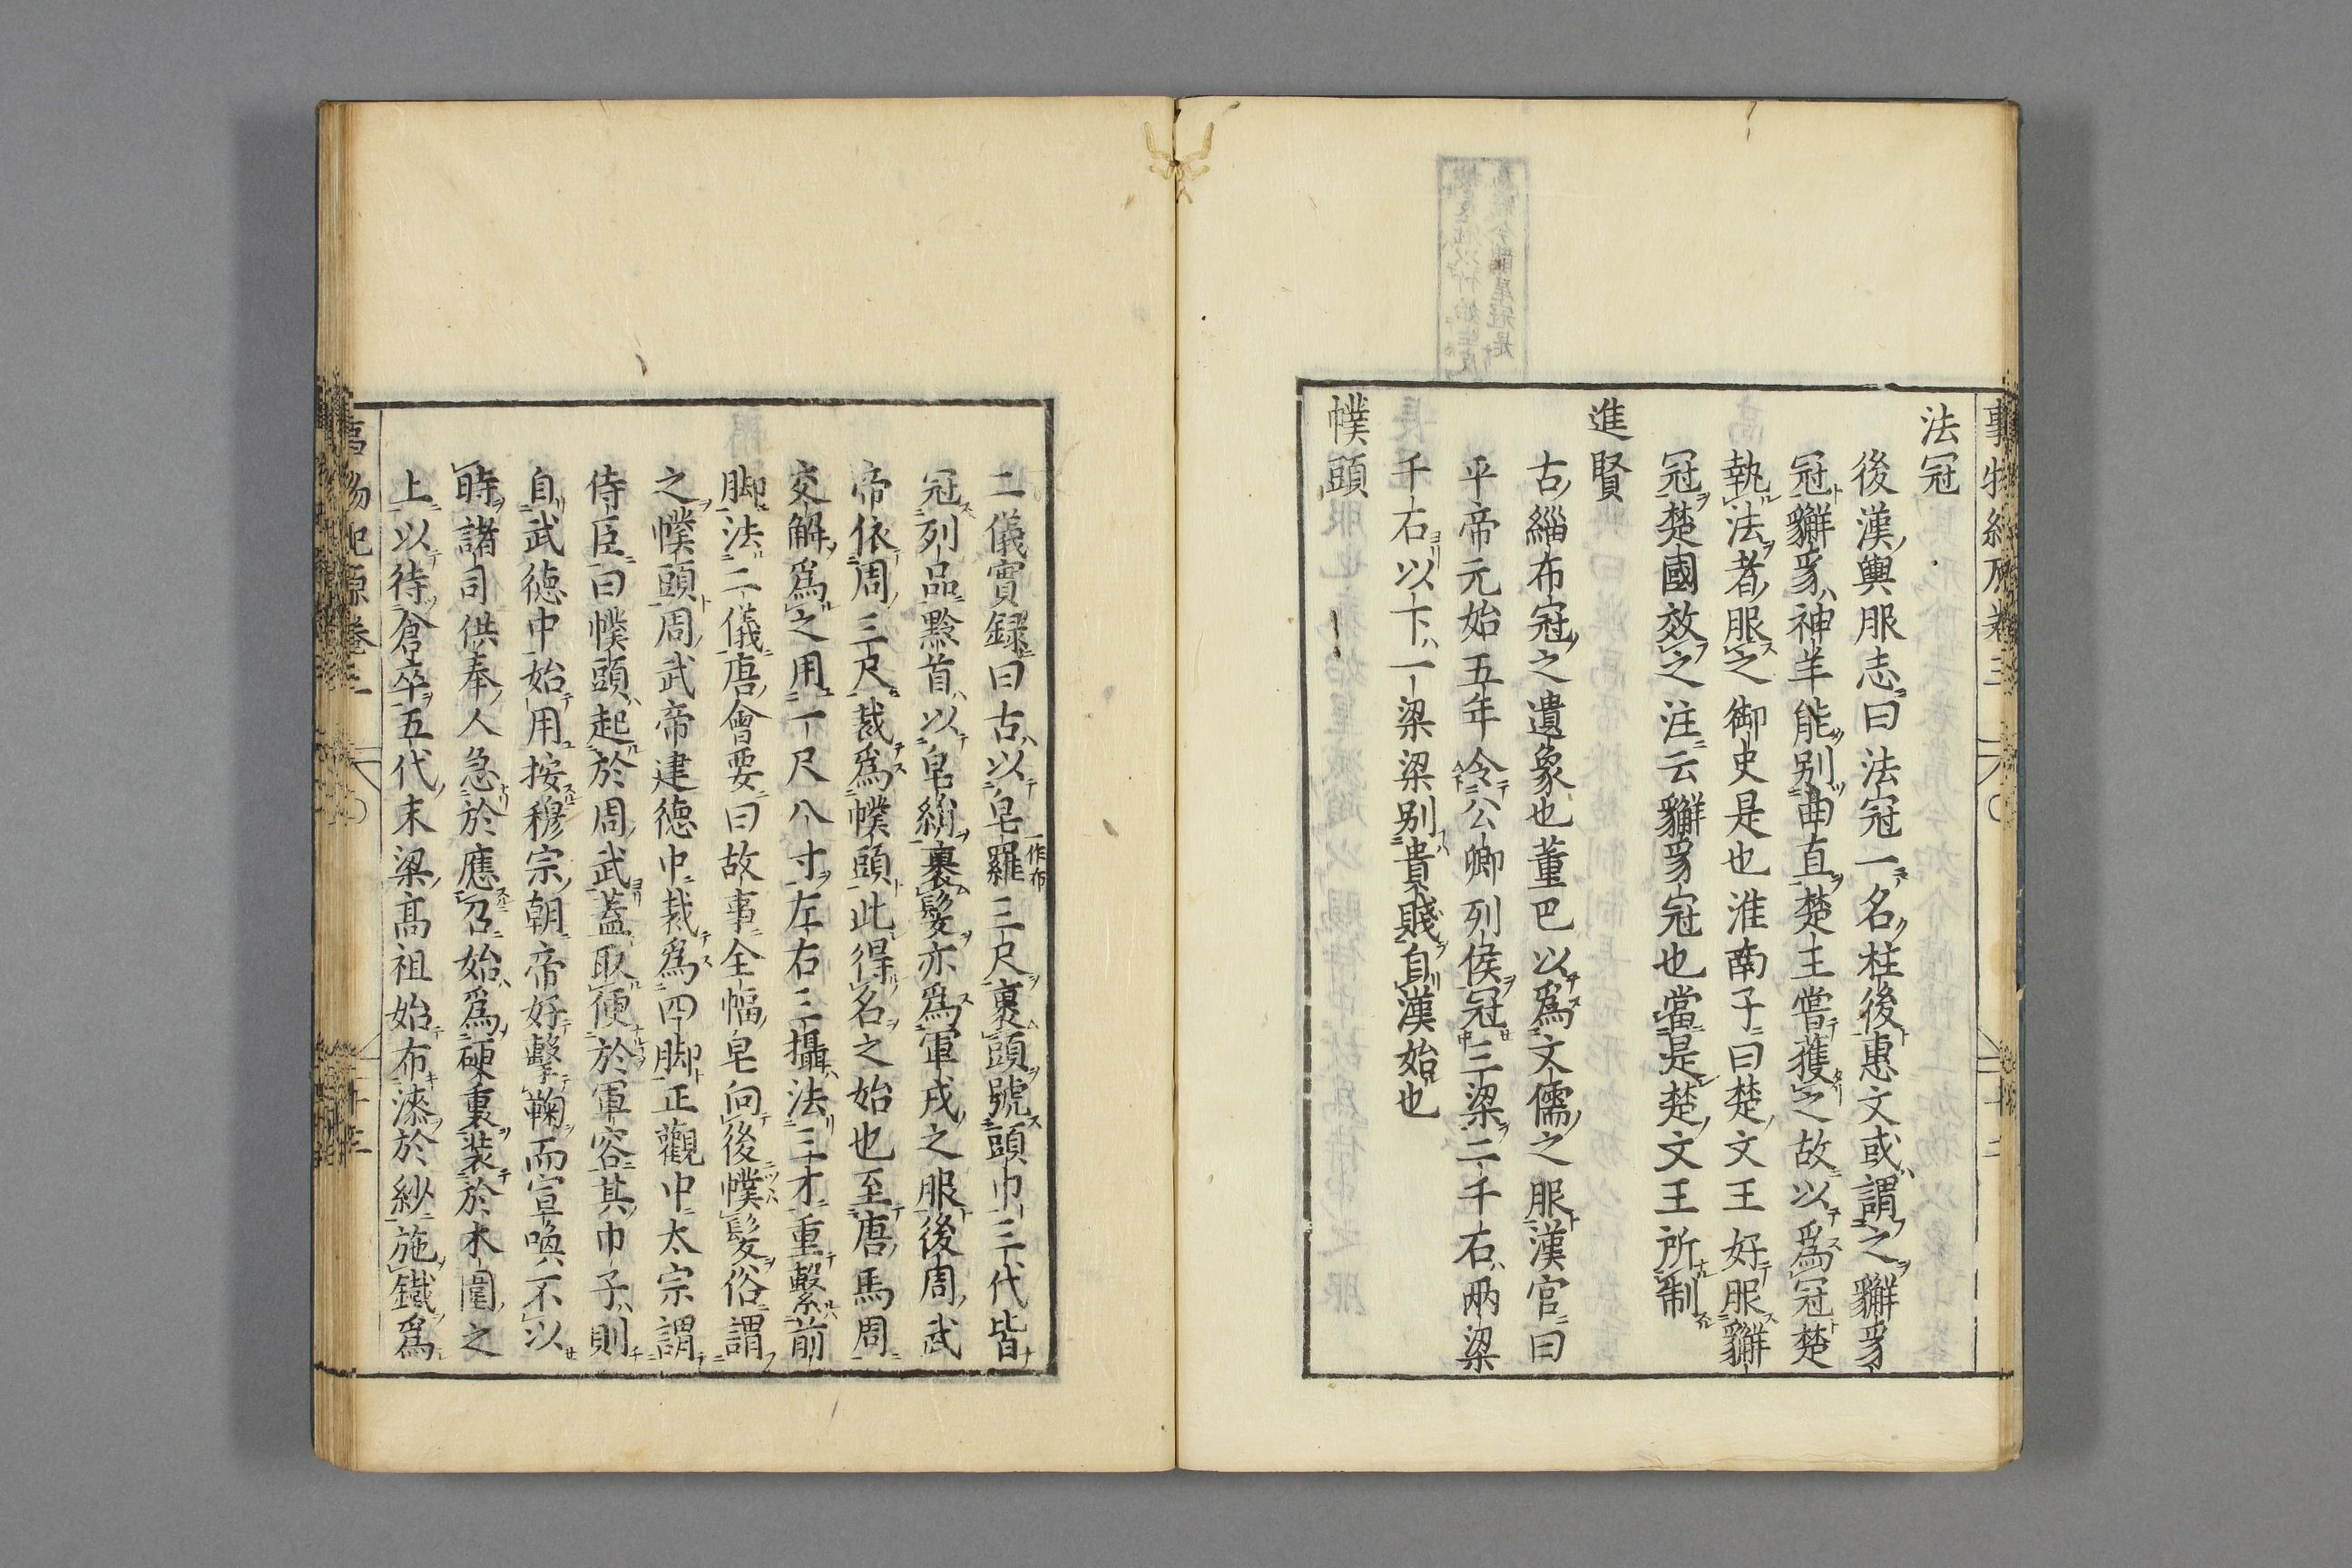 法冠
後漢輿服志曰法冠一名柱後惠文或謂之獬豸
冠獬豸神羊能別曲直楚王嘗獲之故以爲冠楚
執法者服之御史是也淮南子曰楚文王好服獬
冠楚國效之注云獬豸冠也當是楚文王所制
進賢
古緇布冠之遺象也董巴以爲文儒之服漢官曰
平帝元始五年令公卿列侯冠三梁二千右兩梁
千右以下一梁梁別貴賤自漢始也
幞頭
二儀實録曰古以皂羅三尺裹頭號頭巾三代皆
一作布
冠列品黔首以皂絹裹髮亦爲軍戎之服後周武
帝依周三尺裁爲幞頭此得名之始也至唐馬周
交解爲之用一尺八寸左右三攝法三才重繫前
脚法二儀唐會要曰故事全幅皂向後幞髮俗謂
之幞頭周武帝建德中裁爲四脚正觀中太宗謂
侍臣曰幞頭起於周武蓋取便於軍容其巾子則
自武德中始用按穆宗朝帝好擊鞠而宣喚不以
時諸司供奉人急於應召始爲硬裏裝於木圍之
上以待倉卒五代末梁高祖始布漆於紗施鐵爲